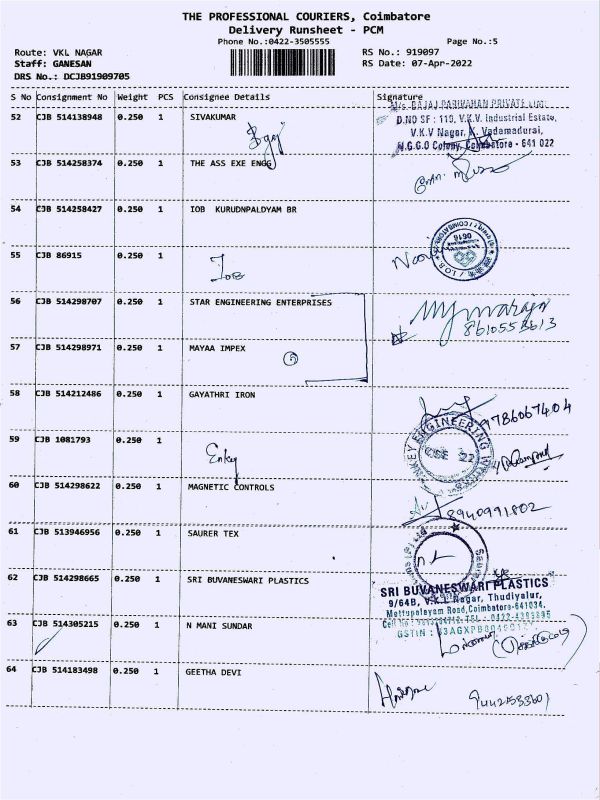 THE PROFESSIONAL COURIERS, Coimbatore
Delivery Runsheet - PCM
Phone No.:0422-3505555
Page No.:5
Route: VKL NAGAR
RS No.: 919097
Staff: GANESAN
RS Date: 07-Apr-2022
DRS No.: DCJB91909705
S No Consignment No Weight PCS Consignee Details Signature
52 CJB 514138948 0.250 1 SIVAKUMAR
M/s. BAJAJ PARIVAHAN PRIVATE
D.NO SF : 110, V.K.V. Industrial Estate,
V.K.V Nagar, K. Vadamadurai,
N.G.G.O Colony, Coimbatore - 641 022
53 CJB 514258374 0.250 1 THE ASS EXE ENGG
54 CJB 514258427 0.250 1 IOB KURUDNPALDYAM BR
55 CJB 86915 0.250 1
IOB
56 CJB 514298707 0.250 1 STAR ENGINEERING ENTERPRISES
8610553613
57 CJB 514298971 0.250 1 MAYAA IMPEX
58 CJB 514212486 0.250 1 GAYATHRI IRON
9786067404
59 CJB 1081793 0.250 1
ENGINEERING
60 CJB 514298622 0.250 1 MAGNETIC CONTROLS
8940991802
61 CJB 513946956 0.250 1 SAURER TEX
62 CJB 514298665 0.250 1 SRI BUVANESWARI PLASTICS
SRI BUVANESWARI PLASTICS
9/64B, V.K.L Nagar, Thudiyalur,
Mettupalayam Road, Coimbatore-641034.
63 CJB 514305215 0.250 1 N MANI SUNDAR
64 CJB 514183498 0.250 1 GEETHA DEVI
9442533601